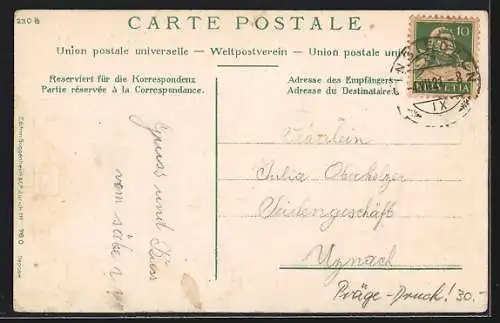 230 B
CARTE POSTALE
Union postale universelle — Weltpostverein — Union postale uni
Reserviert für die Korrespondenz
Partie réservée à la Correspondance.
Adresse des Empfängers
Adresse du Destinataire
10
HELVETIA
IX
Gruss und Kuss
vom
Fräulein
Julia Oberholzer
Seidengeschäft
Uznach
Präge-Druck! 30.-